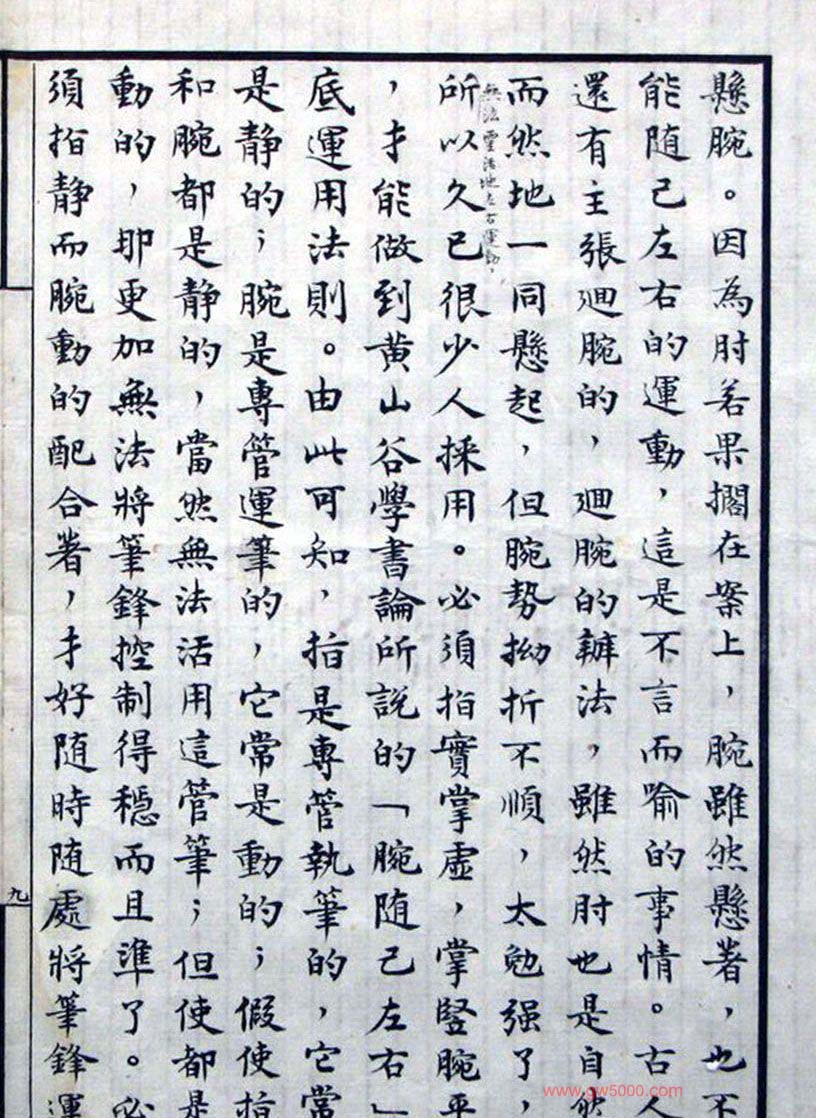 懸腕。因為肘若果擱在案上，腕雖然懸著，也不
能随己左右的運動，這是不言而喻的事情。古人
還有主張廻腕的，廻腕的辦法，雖然肘也是自然
而然地一同懸起，但腕势拗折不順，太勉强了，
無法靈活地左右運動，
所以久已很少人採用。必須指實掌虚，掌竪腕平
，才能做到黄山谷學書論所說的「腕随己左右」
底運用法則。由此可知，指是專管執筆的，它常
是静的；腕是專管運筆的，它常是動的；假使指
和腕都是静的，當然無法活用這管筆；但使都是
動的，那更加無法將筆鋒控制得穩而且準了。必
須指静而腕動的配合著，才好随時随處將筆鋒運
九
www.gw5000.com